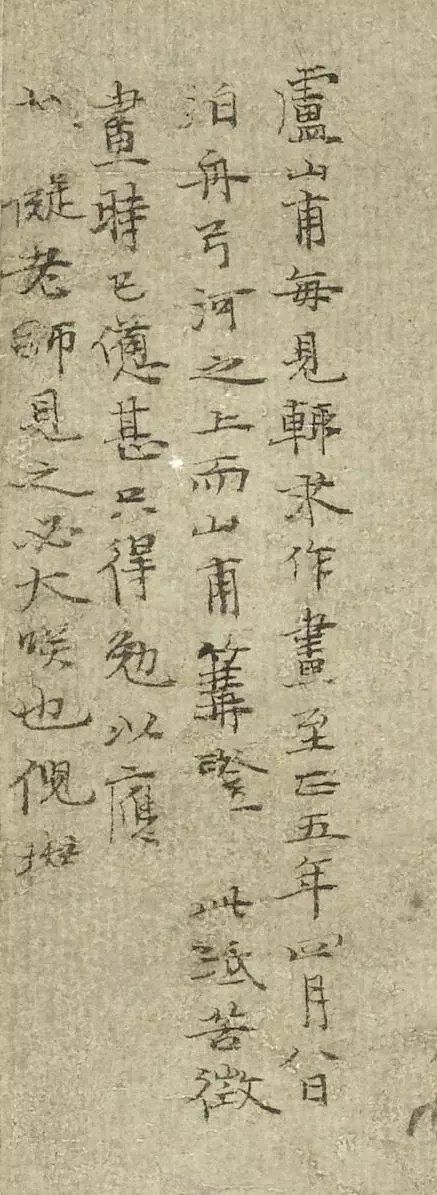 盧山甫每見輒求作畫至正五年四月八日
泊舟弓河之上而山甫篝燈 此紙苦徵
畫時已憊甚只得勉以應
癡老師見之必大笑也倪瓚